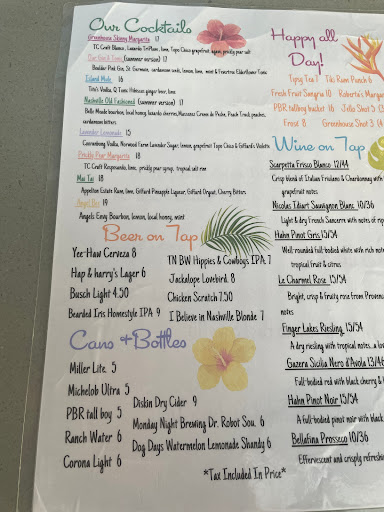 Our Cocktails
Greenhouse Skinny Margarita 13
TC Craft Blanco, Luxardo Triplum, lime, Topo Chico grapefruit, agave, prickly pear salt
(summer version) 17
Boulder Pink Gin, St. Germain, cardamom seeds, lemon, lime, mint & Fevertree Elderflower Tonic
Island Mule 16
Tito's Vodka, Q Tonic Hibiscus ginger beer, lime
Nashville Old Fashioned (summer version) 17
Belle Meade bourbon, local honey, luxardo cherries, Massenez Creme de Peche, Peach Truck peaches,
cardamom bitters
Lavender Lemonade 15
Cocoanbong Vodka, Norwood Farm Lavender Sugar, lemon, grapefruit Topo Chico & Giffard's Violette
Prickly Pear Margarita 18
TC Craft Resposando, lime, prickly pear syrup, tropical salt rim
Mai Tai 18
Appelton Estate Rum, lime, Giffard Pineapple Liqueur, Giffard Orgeat, Cherry Bitters
19
Angels Envy Bourbon, lemon, local honey, mint
Beer on Tap
Yee-Haw Cerveza 8
Hap & harry's Lager 6
Busch Light 4.50
Bearded Iris Homestyle IPA 9
TN BW Hippies & Cowboys IPA 7
Jackalope Lovebird 8
Chicken Scratch 7.50
I Believe in Nashville Blonde 7
Cans & Bottles
Miller Lite 5
Michelob Ultra 5
PBR tall boy 5
Ranch Water 6
Corona Light 6
Diskin Dry Cider 9
Monday Night Brewing Dr. Robot Sou. 6
Dog Days Watermelon Lemonade Shandy 6
*Tax Included In Price*
Happy all
Day!
Tipsy Tea 7 Tiki Rum Punch 8
Fresh Fruit Sangria 10 Roberta's Margar
PBR tallboy bucket 16 Jello Shot 3
Frosé 8 Greenhouse Shot 3
Wine on Tap
Scarpetta Frisco Bianco 12/44
Crisp blend of Italian Friulano & Chardonnay with
grapefruit notes
Nicolas Idiart Sauvignon Blanc 10/36
Light & dry French Sancerre with notes of rip
Hahn Pinot Gris 15/54
Well-rounded full-bodied white with rich note
tropical fruit & citrus
Le Charmel Rose 15/54
Bright, crisp & fruity rose from Provence
notes
Finger Lakes Riesling 15/54
A dry riesling with tropical notes...a lov
Gazera Sicilia Nero d'Avola 13/46
Full-bodied red with black cherry &
Hahn Pinot Noir 15/54
A full-bodied pinot noir with black
Bellafina Prosseco 10/36
Effervescent and crisply refreshin